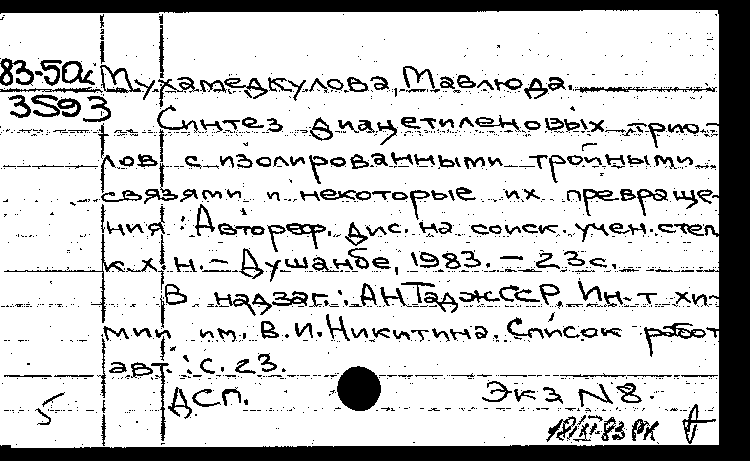 83-50к Мухамедкулова, Мавлюда.
3593
Синтез диацетиленовых трио-
лов с изолированными тройными
связями и некоторые их превраще-
ния : Автореф. дис. на соиск. учен. степ.
к.х.н. – Душанбе, 1983. – 23 с.
В надзаг.: АН ТаджССР, Ин-т хи-
мии им. В.И. Никитина. Список работ
авт.: с. 23.
5 ДСП. Экз N 8.
18/XI-83 РК